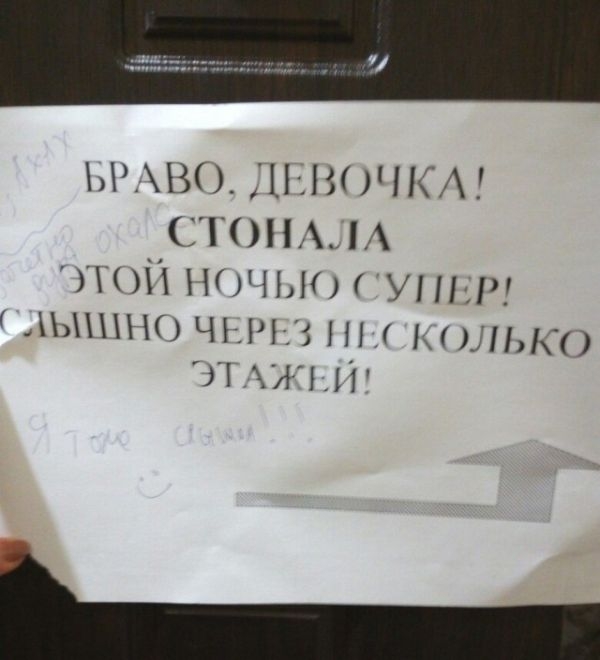 АХАХ
БРАВО, ДЕВОЧКА!
охала
СТОНАЛА
ЭТОЙ НОЧЬЮ СУПЕР!
СЛЫШНО ЧЕРЕЗ НЕСКОЛЬКО
ЭТАЖЕЙ!
Я тоже слышал!!!